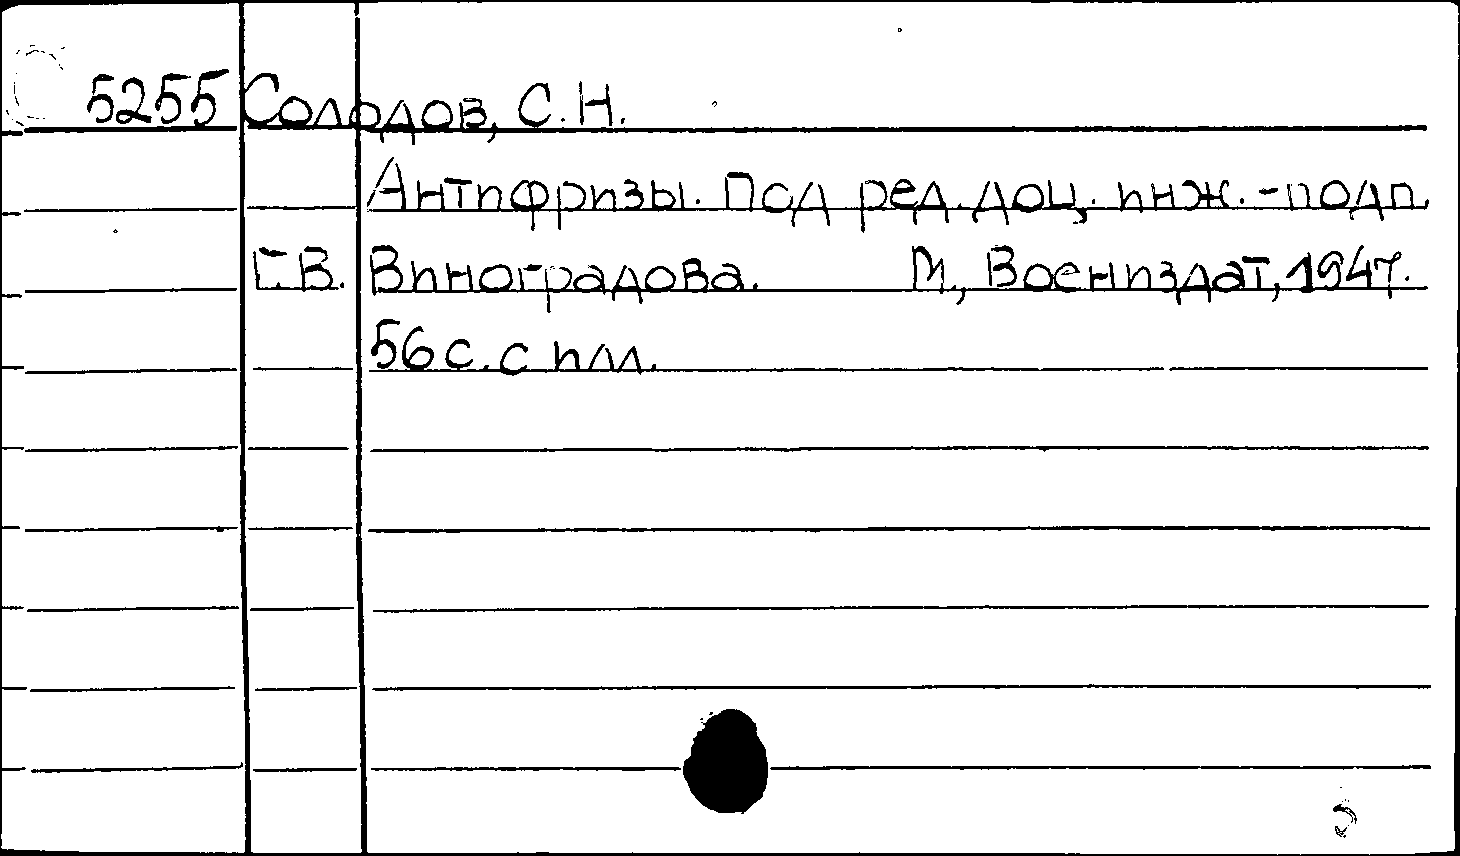 5255 Солодов, С.Н.
Антифризы. Под ред. доц. инж.-подп.
Г.В. Виноградова. М., Воениздат, 1947.
56 с. с илл.